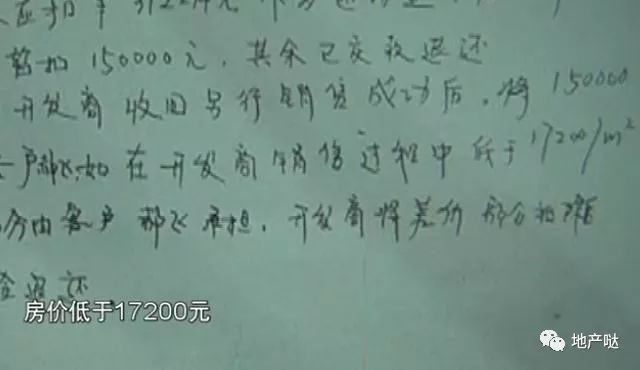 暂扣150000元，其余已交款退还
开发商收回另行销售成功后，将150000
户郝飞，如在开发商销售过程中低于17200/m²
分由客户郝飞承担，开发商将差价部分扣除
房价低于17200元
地产哒